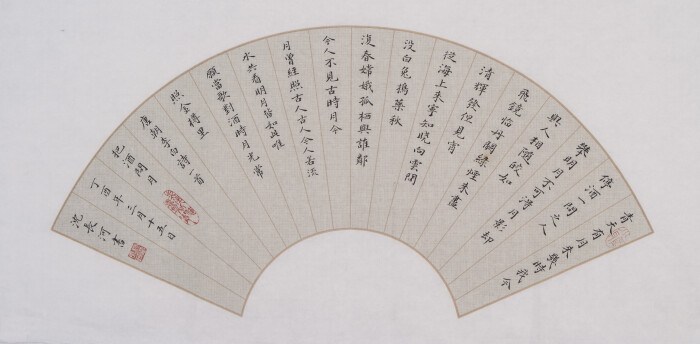 青天有月來幾時我今
停酒一問之人
攀明月不可得月影却
與人相隨皎如
飛鏡臨丹闕綠煙未盡
清輝發但見宵
從海上來寧知曉向雲間
沒白兔搗藥秋
復春嫦娥孤栖與誰鄰
今人不見古時月今
月曾經照古人古人今人若流
水共看明月皆如此唯
願當歌對酒時月光常
照金樽里
唐朝李白詩一首
把酒問月
丁酉年三月十五日
沈長河書